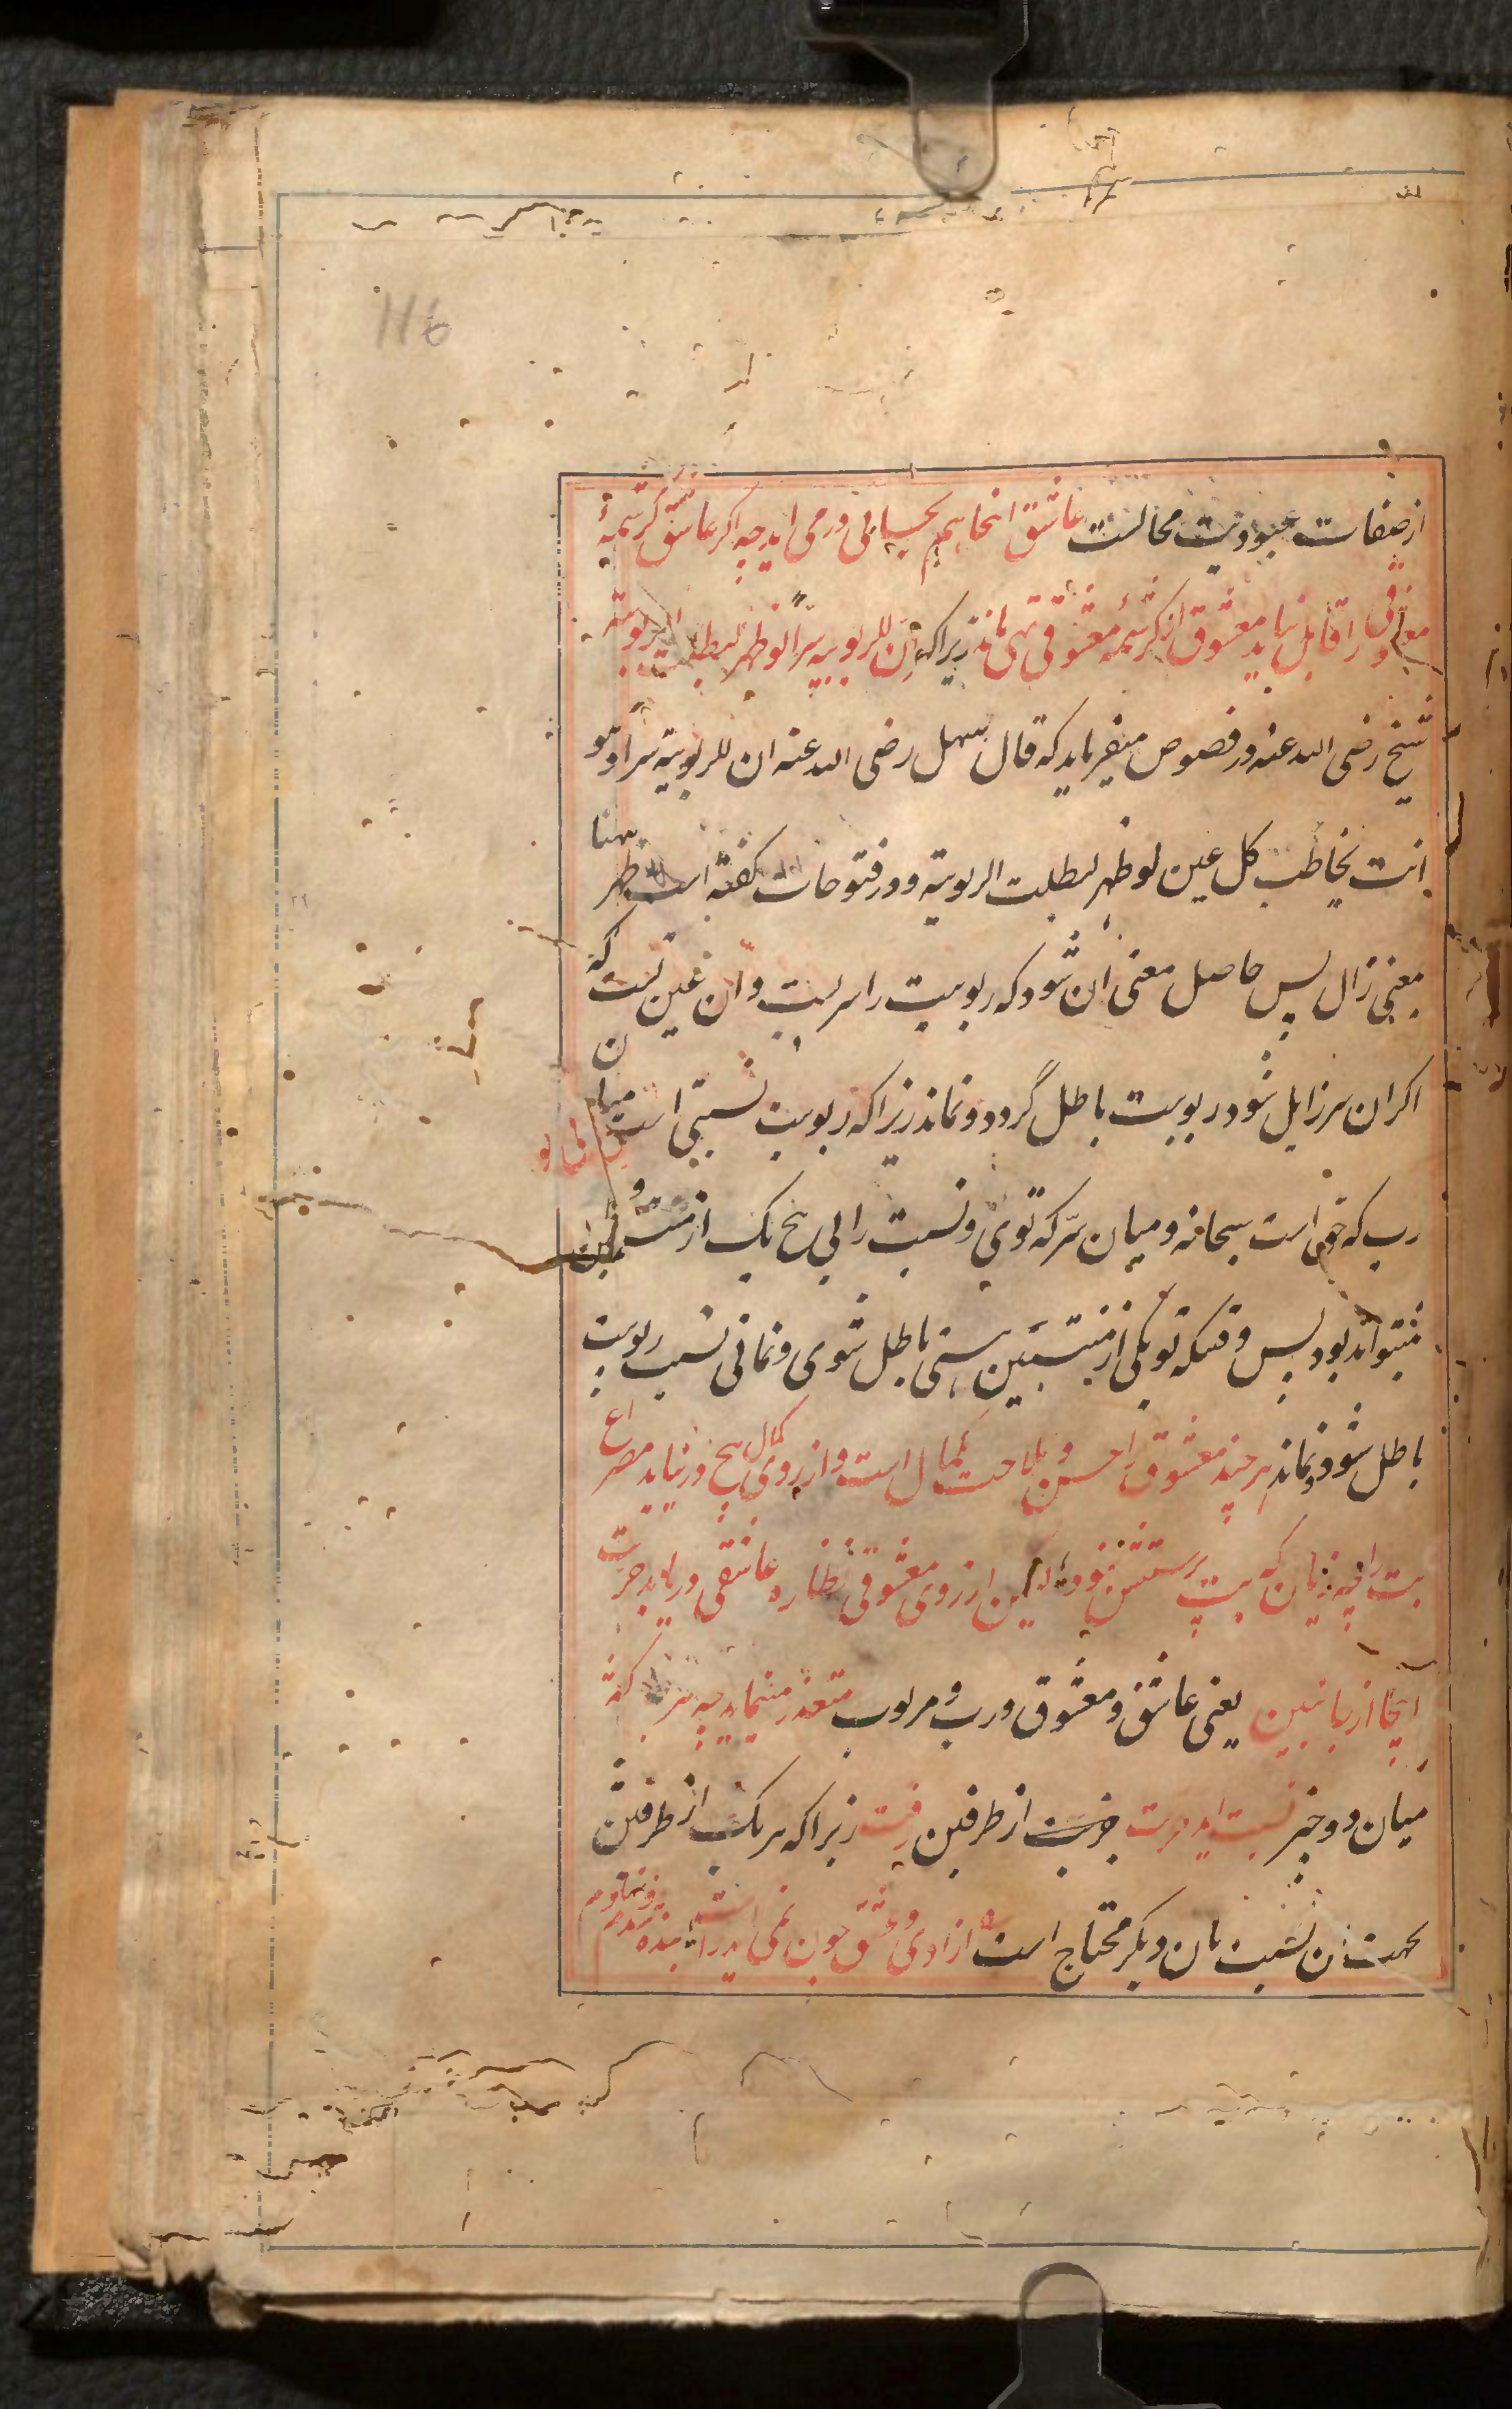 116
از صفات عبودیت محالست عاشق انجا هم بحسابی در می اید چه اکر عاشق کرشمهٔ
معشوقی را قابل نیاید معشوق از کرشمهٔ معشوقی تهی ماند زیراکه ان للربوبیه سرّاً لو ظهر لبطلت الربوبیة
شیخ رضی الله عنه در فصوص میفرماید که قال سهل رضی الله عنه ان للربوبیة سراً و هو
انت یخاطب کل عین لو ظهر لبطلت الربوبیة و در فتوحات کفته است ظهر هنا
بمعنی زال پس حاصل معنی ان شود که ربوبیت را سریست و ان عین تست که
اکر ان سر زایل شود ربوبیت باطل گردد و نماند زیرا که ربوبیت نسبتی است میان
رب که حق است سبحانه و میان سرّ که توی و نسبت را بی هیچ یک از منتسبین
نمیتواند بود پس وقتیکه تو یکی از منتسبین هستی باطل شوی و نمانی نسبت ربوبیت
باطل شود و نماند هر چند معشوق را حسن و ملاحت بکمال است و از روی کمال هیچ در نیابد مصراع
بت را چه زیان که بت پرستش نبود لیکن از روی معشوقی نظاره عاشقی دریابد
اینجا از جانبین یعنی عاشق و معشوق و رب و مربوب متعذر مینماید چه هر کفه
میان دو چیز نسبت اید حریت از طرفین رفت زیرا که هر یک از طرفین
بجهت ان نسبت بان دیکر محتاج است ازادی و عشق چون نمی اید راست بنده شدم